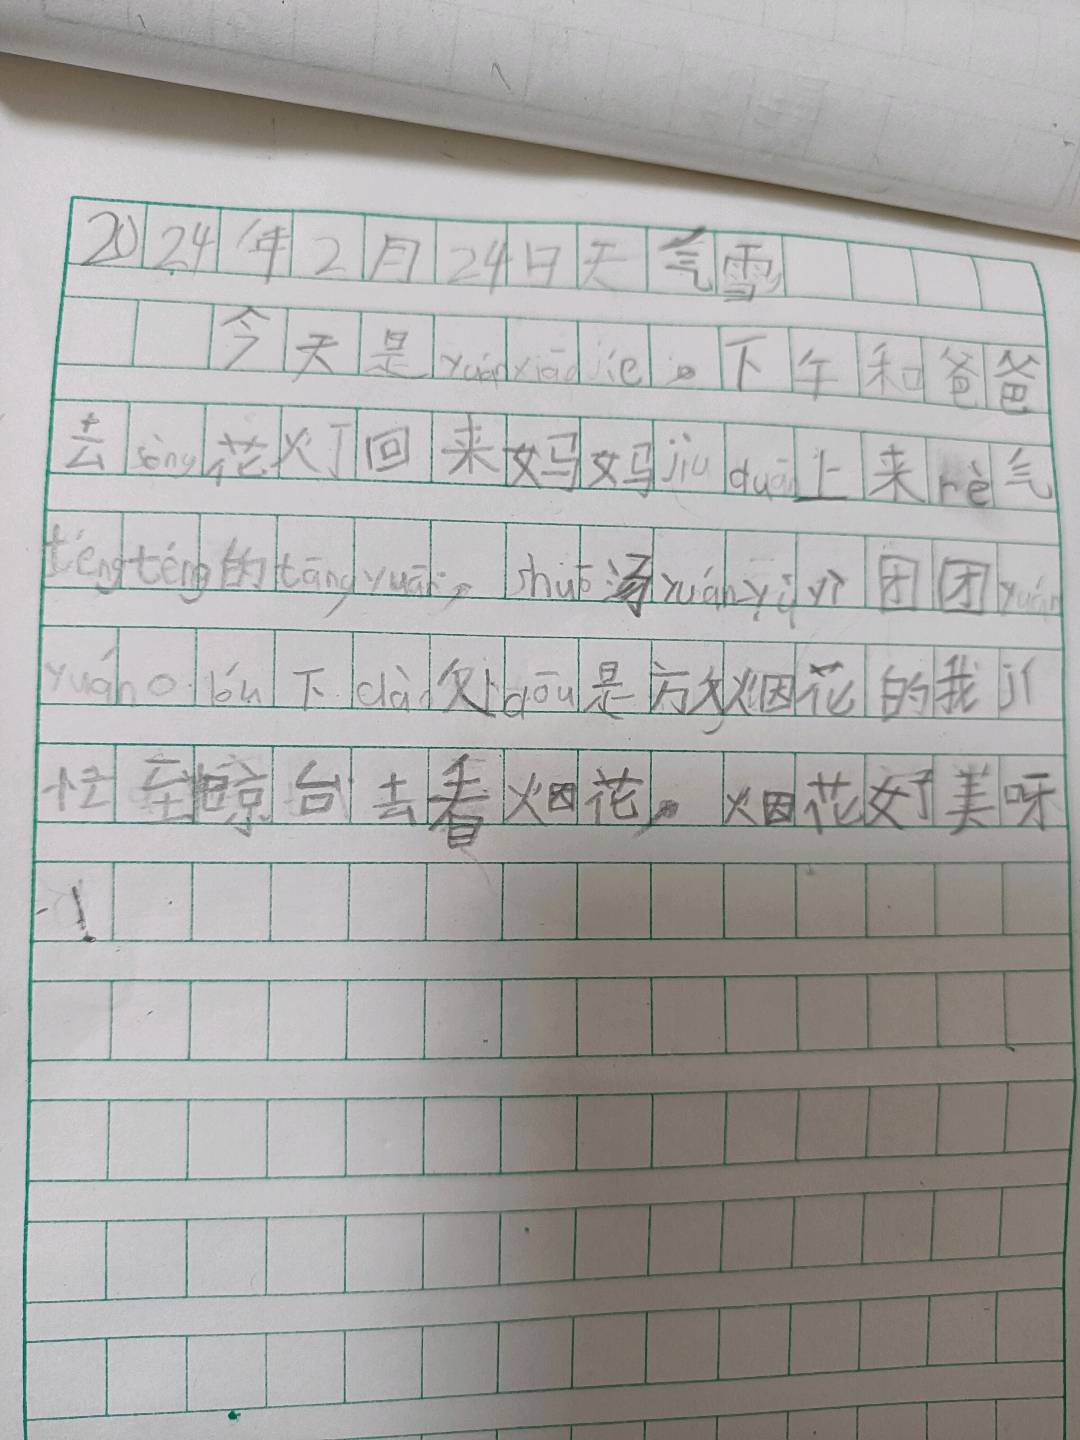 2024年2月24日天气雪
今天是yuánxiāojié。下午和爸爸
去sòng花灯回来妈妈jiùduān上来rè气
téngténg的tāngyuán，shuō汤yuányì个团团yuán
yuán。lóu下dào处dōu是方文烟花的我jí
忙至晾台去看烟花。烟花好美呀
！